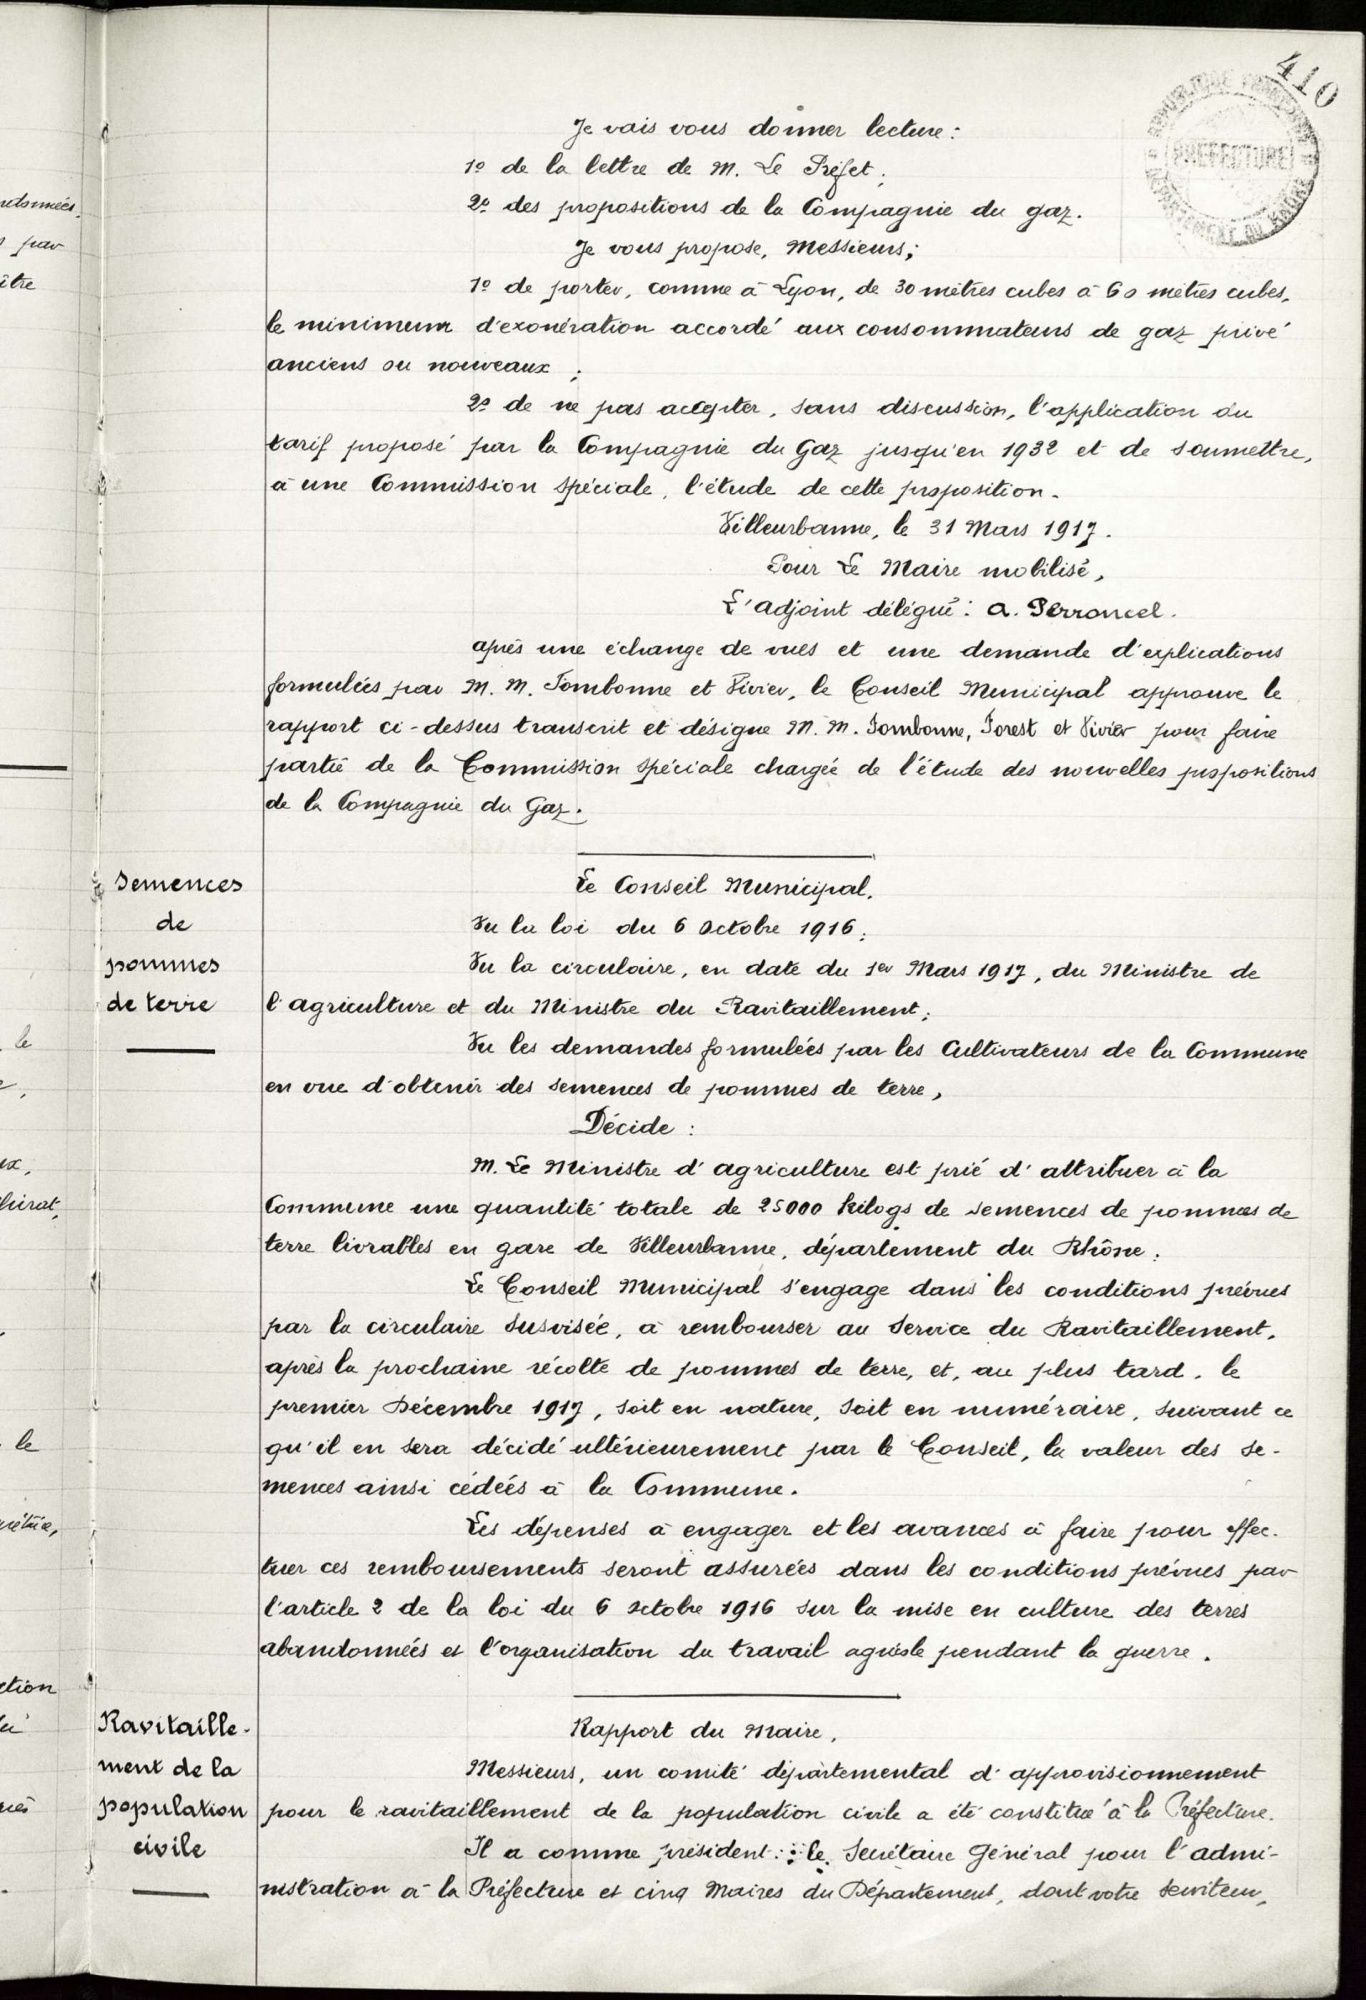 410
RÉPUBLIQUE FRANÇAISE
PRÉFECTURE
DÉPARTEMENT DU RHÔNE
Je vais vous donner lecture :
1º de la lettre de M. Le Préfet ;
2º des propositions de la Compagnie du gaz.
Je vous propose, Messieurs ;
1º de porter, comme à Lyon, de 30 mètres cubes à 60 mètres cubes,
le minimum d'exonération accordé aux consommateurs de gaz privé
anciens ou nouveaux ;
2º de ne pas accepter, sans discussion, l'application du
tarif proposé par la Compagnie du Gaz jusqu'en 1932 et de soumettre,
à une Commission spéciale, l'étude de cette proposition.
Villeurbanne, le 31 Mars 1917.
Pour Le Maire mobilisé,
L'adjoint délégué : A. Perroncel.
après une échange de vues et une demande d'explications
formulées par M. M. Jombonne et Vivier, le Conseil Municipal approuve le
rapport ci-dessus transcrit et désigne M. M. Jombonne, Forest et Vivier pour faire
partie de la Commission spéciale chargée de l'étude des nouvelles propositions
de la Compagnie du Gaz.
Semences
de
pommes
de terre
Le Conseil Municipal,
Vu la loi du 6 Octobre 1916 ;
Vu la circulaire, en date du 1er Mars 1917, du Ministre de
l'agriculture et du Ministre du Ravitaillement ;
Vu les demandes formulées par les Cultivateurs de la Commune
en vue d'obtenir des semences de pommes de terre,
Décide :
M. Le Ministre d'agriculture est prié d'attribuer à la
Commune une quantité totale de 25000 Kilogs de semences de pommes de
terre livrables en gare de Villeurbanne, département du Rhône.
Le Conseil Municipal s'engage dans les conditions prévues
par la circulaire susvisée, à rembourser au Service du Ravitaillement,
après la prochaine récolte de pommes de terre, et, au plus tard, le
premier Décembre 1917, soit en nature, soit en numéraire, suivant ce
qu'il en sera décidé ultérieurement par le Conseil, la valeur des se-
mences ainsi cédées à la Commune.
Les dépenses à engager et les avances à faire pour effec-
tuer ces remboursements seront assurées dans les conditions prévues par
l'article 2 de la loi du 6 Octobre 1916 sur la mise en culture des terres
abandonnées et l'organisation du travail agricole pendant la guerre.
Ravitaille-
ment de la
population
civile
Rapport du Maire.
Messieurs, un comité départemental d'approvisionnement
pour le ravitaillement de la population civile a été constitué à la Préfecture.
Il a comme président : le Secrétaire Général pour l'admi-
nistration à la Préfecture et cinq Maires du Département, dont votre serviteur,